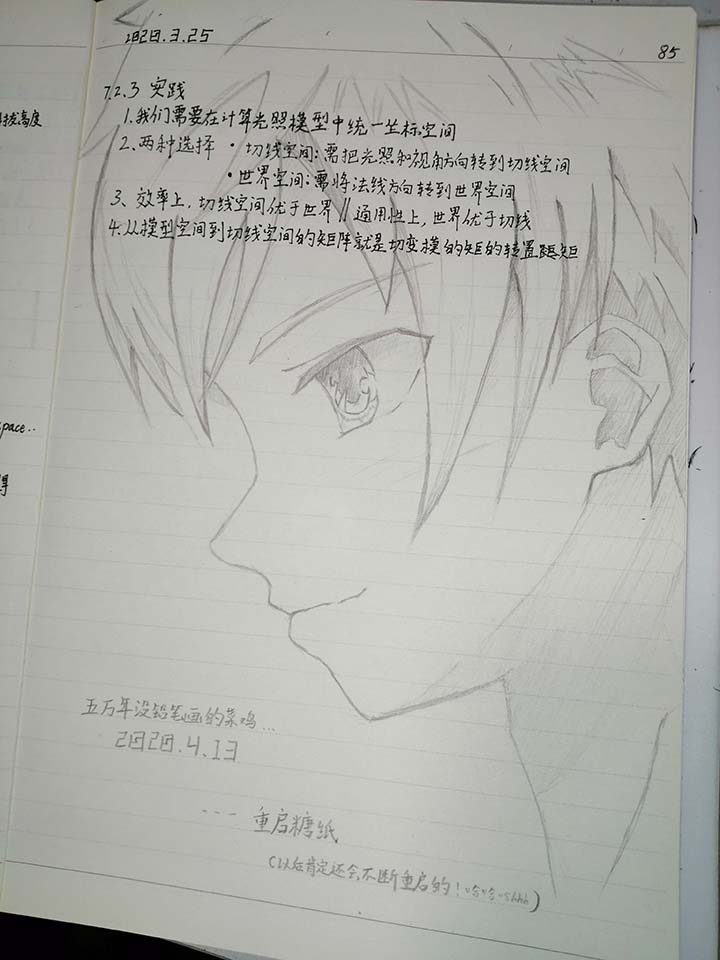 2020.3.25
85
7.2.3 实践
1.我们需要在计算光照模型中统一坐标空间
2.两种选择 · 切线空间:需把光照和视角方向转到切线空间
· 世界空间:需将法线方向转到世界空间
3、效率上,切线空间优于世界 // 通用性上,世界优于切线
4.从模型空间到切线空间的矩阵就是切变模的矩的转置矩
拔高度
space..
得
五万年没铅笔画的菜鸡...
2020.4.13
--- 重启糖纸
(以后肯定还会不断重启的!哈哈hhh)